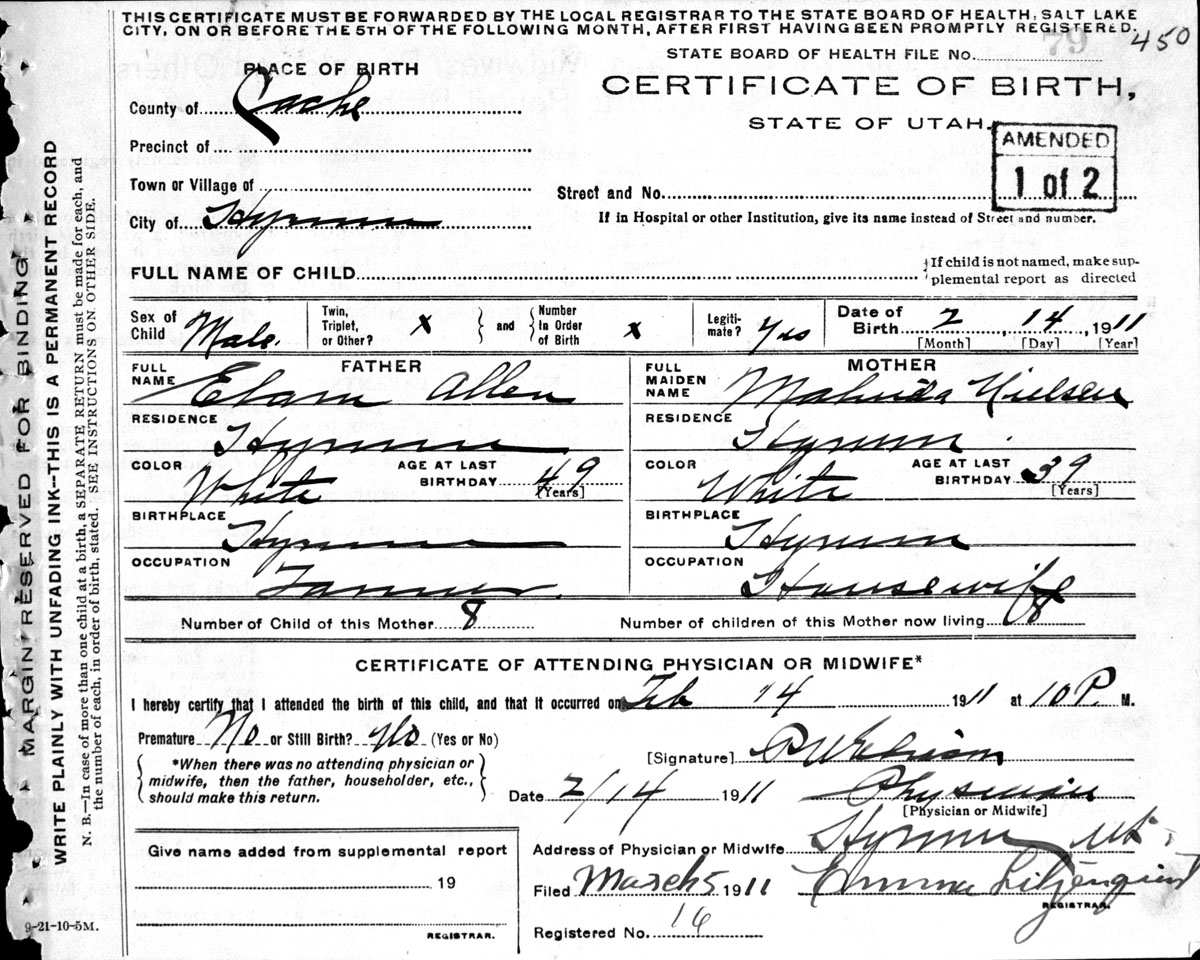 THIS CERTIFICATE MUST BE FORWARDED BY THE LOCAL REGISTRAR TO THE STATE BOARD OF HEALTH, SALT LAKE
CITY, ON OR BEFORE THE 5TH OF THE FOLLOWING MONTH, AFTER FIRST HAVING BEEN PROMPTLY REGISTERED.
79 450
STATE BOARD OF HEALTH FILE No.
PLACE OF BIRTH
CERTIFICATE OF BIRTH,
STATE OF UTAH.
AMENDED
1 of 2
County of Cache
Precinct of
Town or Village of
Street and No.
City of Hyrum
If in Hospital or other Institution, give its name instead of Street and number.
FULL NAME OF CHILD
If child is not named, make sup-
plemental report as directed
Sex of Child Male. Twin, Triplet, or Other? x and Number In Order of Birth x Legiti-mate? Yes Date of Birth 2, 14, 1911
[Month] [Day] [Year]
FATHER MOTHER
FULL NAME Elam Allen FULL MAIDEN NAME Malinda Nielsen
RESIDENCE Hyrum RESIDENCE Hyrum
COLOR White AGE AT LAST BIRTHDAY 49 [Years] COLOR White AGE AT LAST BIRTHDAY 39 [Years]
BIRTHPLACE Hyrum BIRTHPLACE Hyrum
OCCUPATION Farmer. OCCUPATION Housewife
Number of Child of this Mother 8 Number of children of this Mother now living 8
CERTIFICATE OF ATTENDING PHYSICIAN OR MIDWIFE*
I hereby certify that I attended the birth of this child, and that it occurred on Feb 14 1911 at 10 P. M.
Premature No or Still Birth? No (Yes or No)
[Signature]
*When there was no attending physician or
midwife, then the father, householder, etc.,
should make this return.
Date 2/14 1911 Physician
[Physician or Midwife]
Give name added from supplemental report
19
REGISTRAR.
Address of Physician or Midwife Hyrum Ut.
Filed March 5 1911 Emma Liljenquist
REGISTRAR.
Registered No. 16
9-21-10-5M.
MARGIN RESERVED FOR BINDING
WRITE PLAINLY WITH UNFADING INK--THIS IS A PERMANENT RECORD
N. B.—In case of more than one child at a birth, a SEPARATE RETURN must be made for each, and
the number of each, in order of birth, stated. SEE INSTRUCTIONS ON OTHER SIDE.